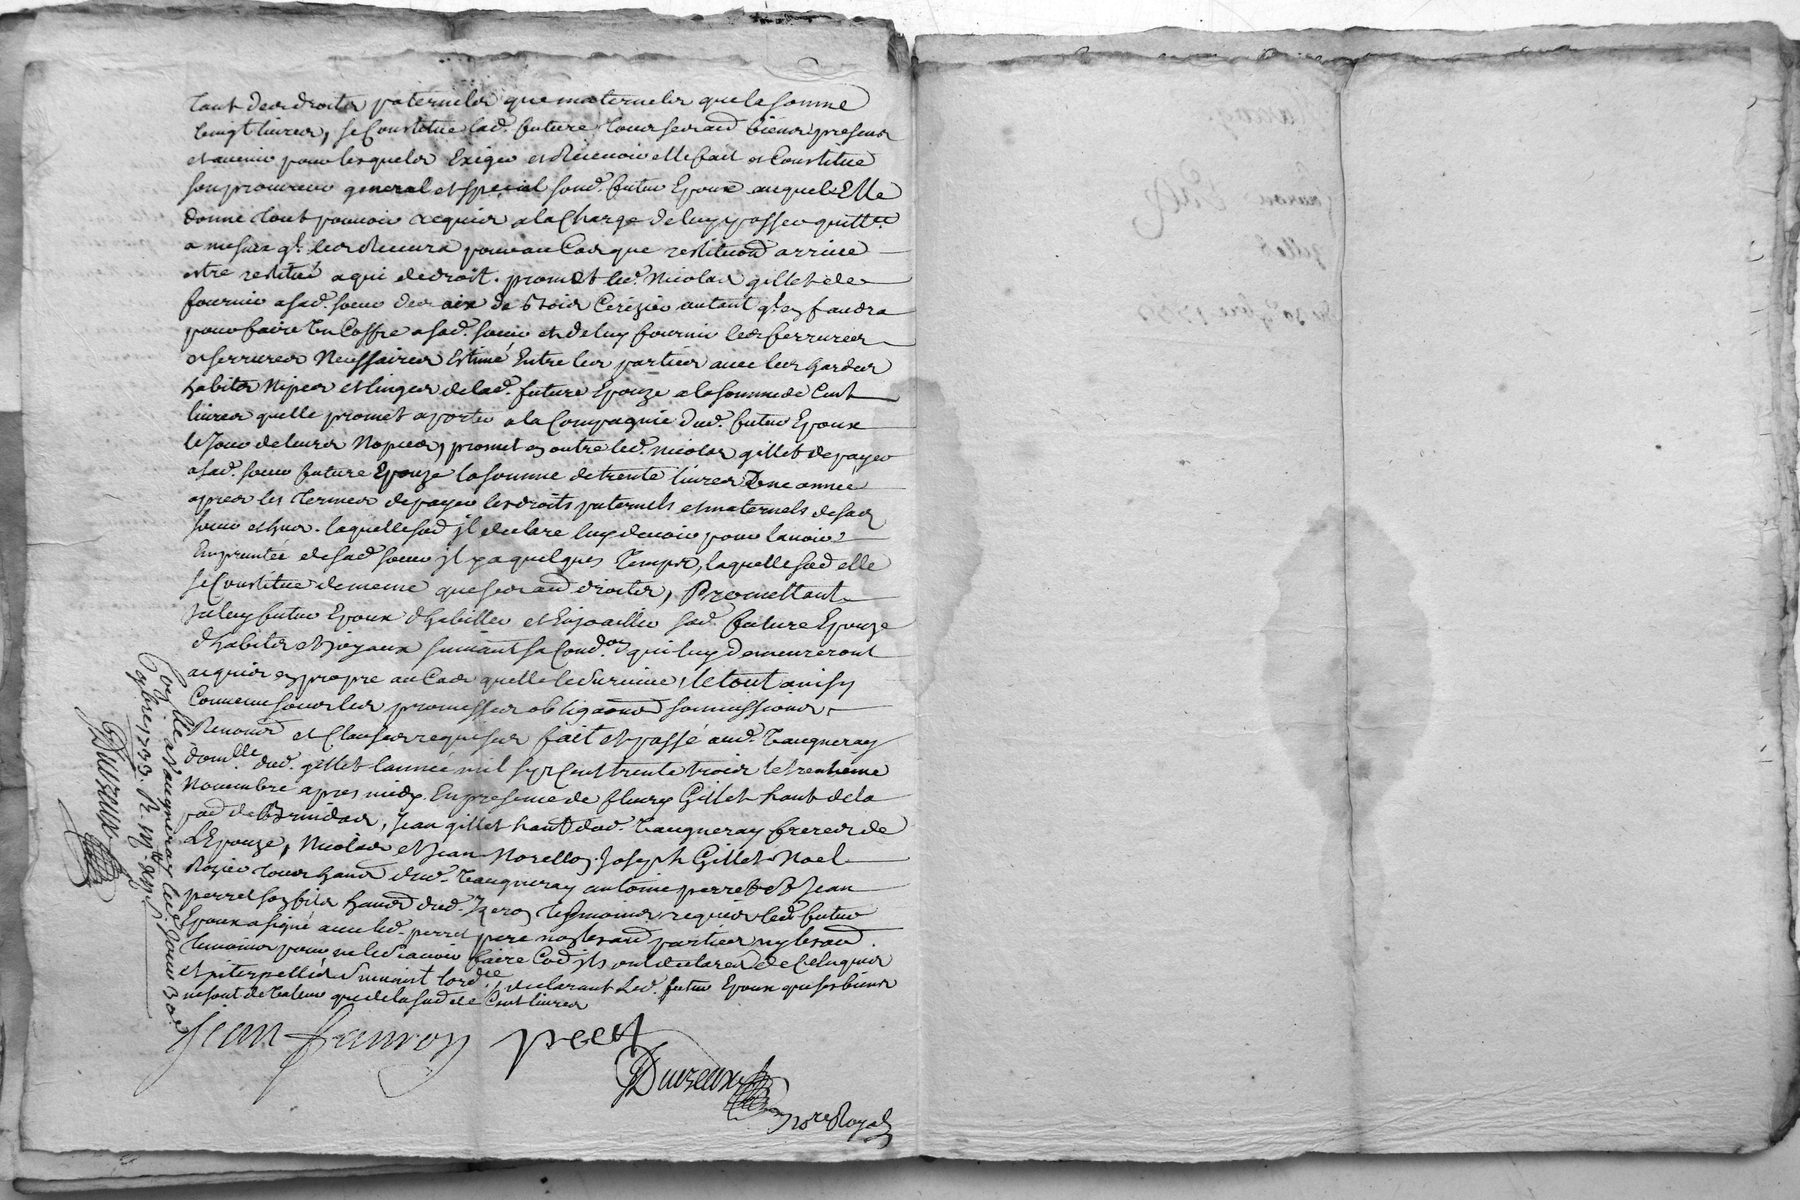 tant des droits paternels que maternels que la somme
vingt livres, se Constitue lad. future tous sesd. biens presens
et avenir pour lesquels Exiger et Recevoir elle fait et Constitue
son procureur general et special sond. futur Epoux auquel Elle
donne tout pouvoir requis a la Charge de luy passer quittce
a mesure ql. les Recevra pour au Cas que restituon arrive
estre restitué a qui de droit. promet led. Nicolas gillet de
fournir a sad. soeur des aix de bois Cerizier autant ql. en faudra
pour faire Un Coffre a sad. soeur et de luy fournir les ferrures
et serrures Necessaires Estimé Entre les parties avec les hardes
habits Nipes et linges de lad. future Epouze a la somme de Cent
livres quelle promet aporter a la Compagnie dud. futur Epoux
le Jour de leurs Nopces, promet en outre led. Nicolas gillet de payer
a sad. soeur future Epouze la somme de trente livres Une année
apres les termes de payer les droits paternels et maternels de sad.
soeur laquelle sod. il declare luy devoir pour lavoir
Empruntée de sad. soeur il y a quelques Temps, laquelle sod. elle
se Constitue de meme que sesd. droits, Promettant
iceluy futur Epoux d'habiller et Enjoailler sad. future Epouze
d'habits et joyaux suivant sa Condon. qui luy demeureront
acquis en propre au Cas quelle le Survive, le tout ainsy
Convenu sous les promesses obligaons soumissions
Renons et Clauses requises fait et passé aud. Vaugneray
domlle. dud. gillet lannée mil sept Cent trente trois le trentieme
Novembre apres midy En presence de fleury Gillet hant de la
pad. de Brindas, Jean gillet hant dud. Vaugneray freres de
L'Epouze, Nicolas et Jean Morellon Joseph Gillet Noel
Rozier tous hans dud. Vaugneray antoine perret et Jean
perret son fils hans dud. Izeron temoins requis led. futur
Epoux a signé avec led. perret pere non lesd. parties ny lesd.
temoins pour ne le sçavoir faire Comme ils ont declaré de Ce Enquis
et interpellés suivant lordce. declarant led. futur Epoux que ses biens
ne sont de Valeur que de la sod. de Cent livres
Jean fauron peret
Duvreux
nore Royal
Conllé a Vaugneray led. Jour 30e
9bre 1733. R.
Duvreux